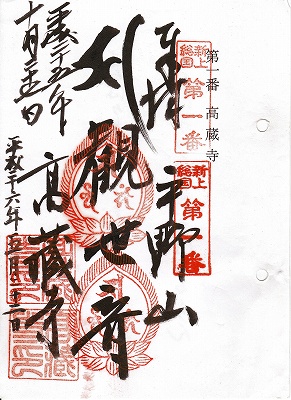 第一番 高蔵寺
新上総国
第一番
新上総国
第一番
奉拝 平野山
觀世音
高藏寺
平成二十五年
十月
平成十六年五月